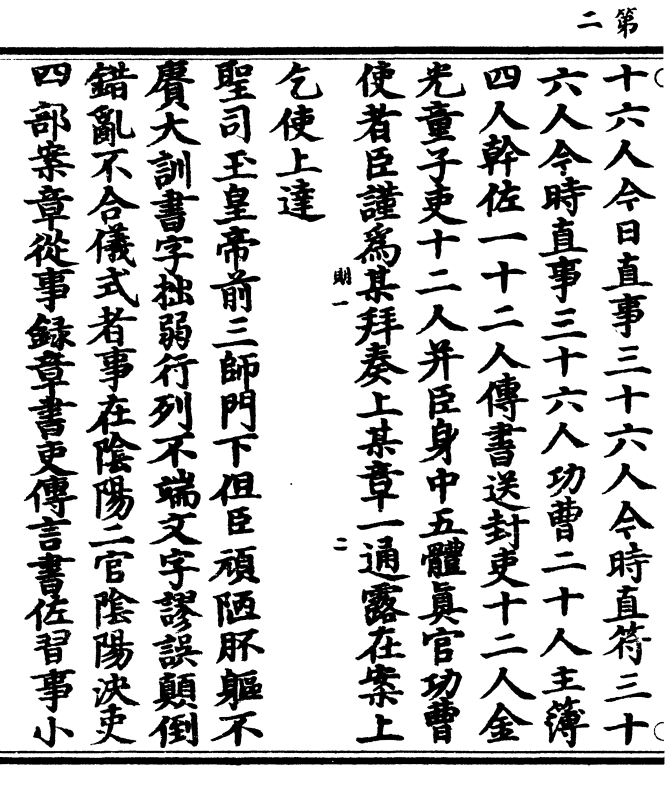 第二
十六人今日直事三十六人今時直符三十
六人今時直事三十六人功曹二十人主簿
四人幹佐一十二人傳書送封吏十二人金
光童子吏十二人并臣身中五體眞官功曹
使者臣謹爲某拜奏上某章一通露在案上
明一
二
乞使上達
聖司玉皇帝前三師門下但臣頑陋肧軀不
賡大訓書字拙弱行列不端文字謬誤顛倒
錯亂不合儀式者事在陰陽二官陰陽決吏
四部案章從事録章書吏傳言書佐習事小